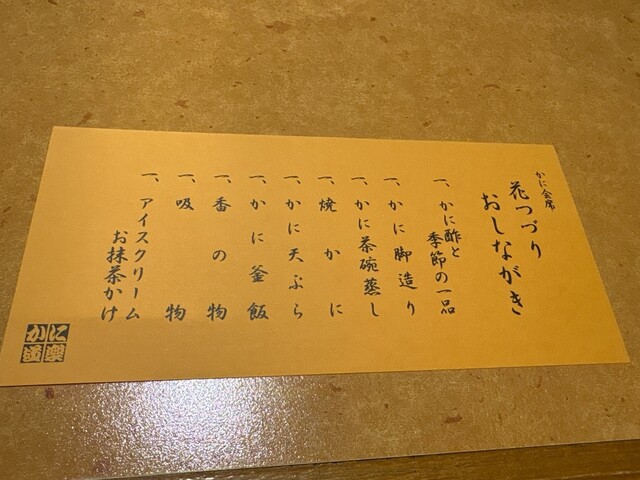 かに会席
花つづり
おしながき
一、かに酢と
季節の一品
一、かに脚造り
一、かに茶碗蒸し
一、焼かに
一、かに天ぷら
一、かに釜飯
一、香の物
一、吸物
一、アイスクリーム
お抹茶かけ
かに道楽